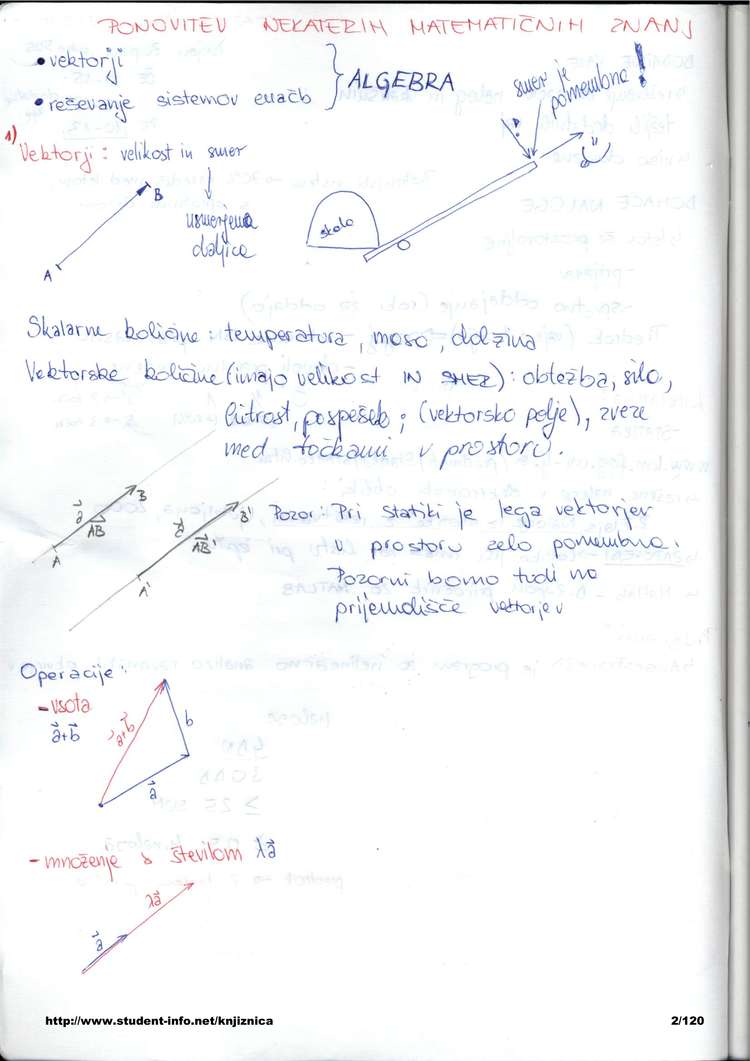 PONOVITEV NEKATERIH MATEMATIČNIH ZNANJ
• vektorji
• reševanje sistemov enačb
ALGEBRA
smer je
pomembna!
1)
Vektorji: velikost in smer
usmerjena
daljica
A
B
skala
Skalarne količine: temperatura, masa, dolžina
Vektorske količine (imajo velikost IN SMER): obtežba, sila,
hitrost, pospešek; (vektorsko polje), zveze
med točkami v prostoru.
a⃗
B
AB⃗
A
a⃗
B'
AB'⃗
A'
Pozor: Pri statiki je lega vektorjev
v prostoru zelo pomembna.
Pozorni bomo tudi na
prijemališče vektorjev
Operacije:
- vsota
a⃗+b⃗
a⃗+b⃗
b
a⃗
- množenje s številom λa⃗
λa⃗
a⃗
http://www.student-info.net/knjiznica
2/120